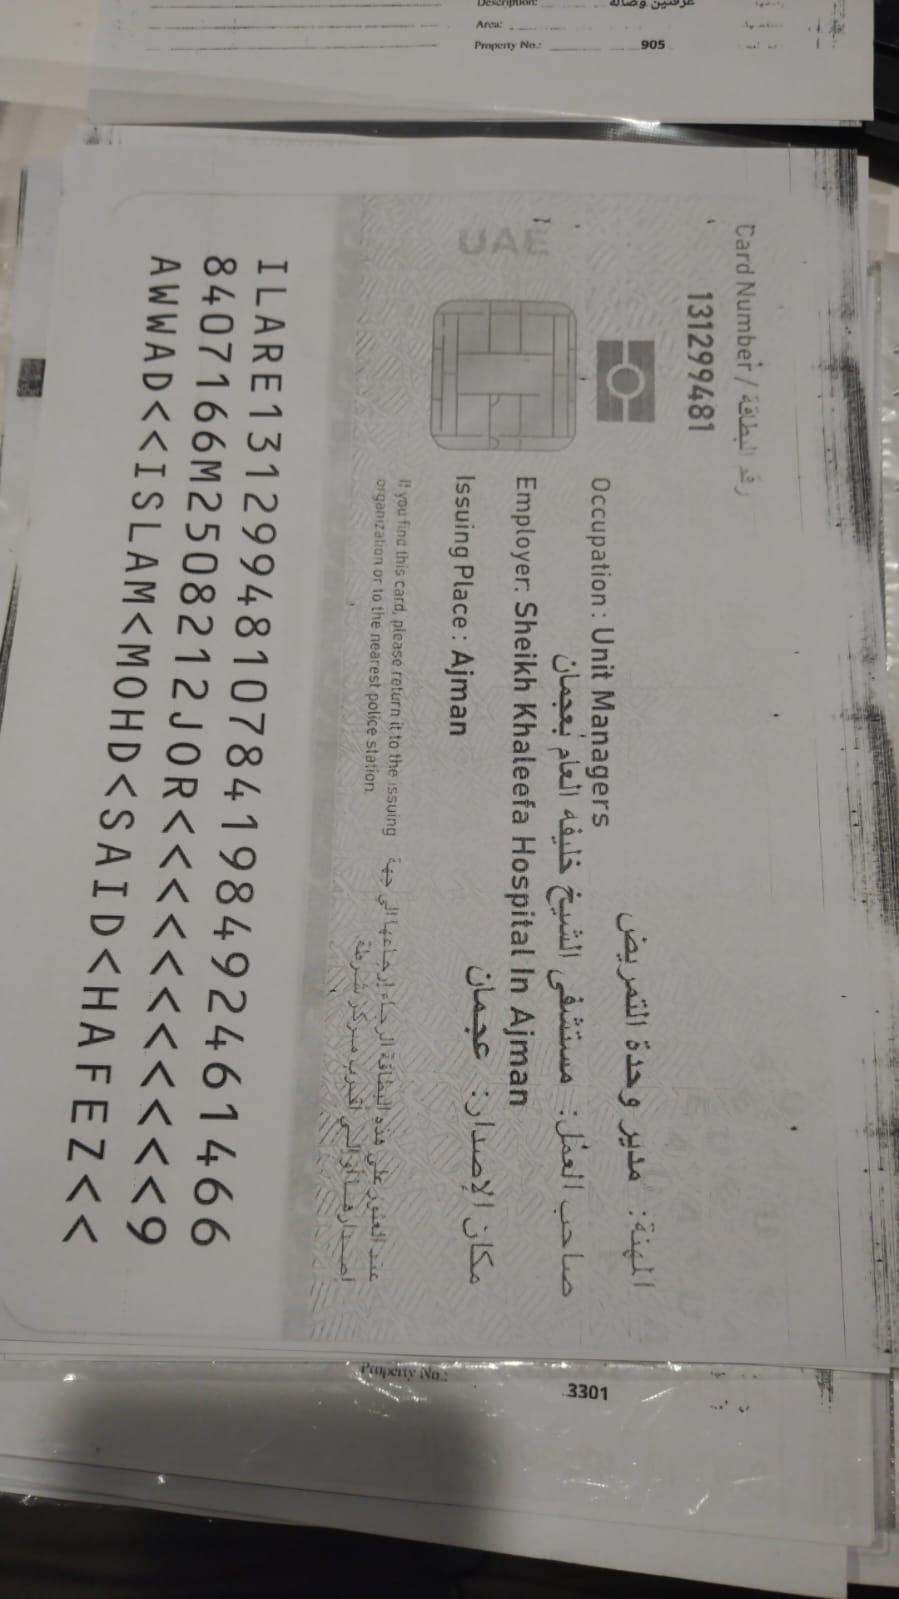 Description:
غرفتين وصالة
Area:
Property No.: 905
Card Number / رقم البطاقة
131299481
UAE
المهنة: مدير وحدة التمريض
Occupation: Unit Managers
صاحب العمل: مستشفى الشيخ خليفه العام بعجمان
Employer: Sheikh Khaleefa Hospital In Ajman
مكان الإصدار: عجمان
Issuing Place: Ajman
If you find this card, please return it to the issuing
organization or to the nearest police station.
عند العثور على هذه البطاقة الرجاء إرجاعها الي جهة
اصدارها أو إلى اقرب مركز شرطة
ILARE1312994810784198492461466
8407166M2508212JOR<<<<<<<<<<<9
AWWAD<<ISLAM<MOHD<SAID<HAFEZ<<
Property No.: 3301